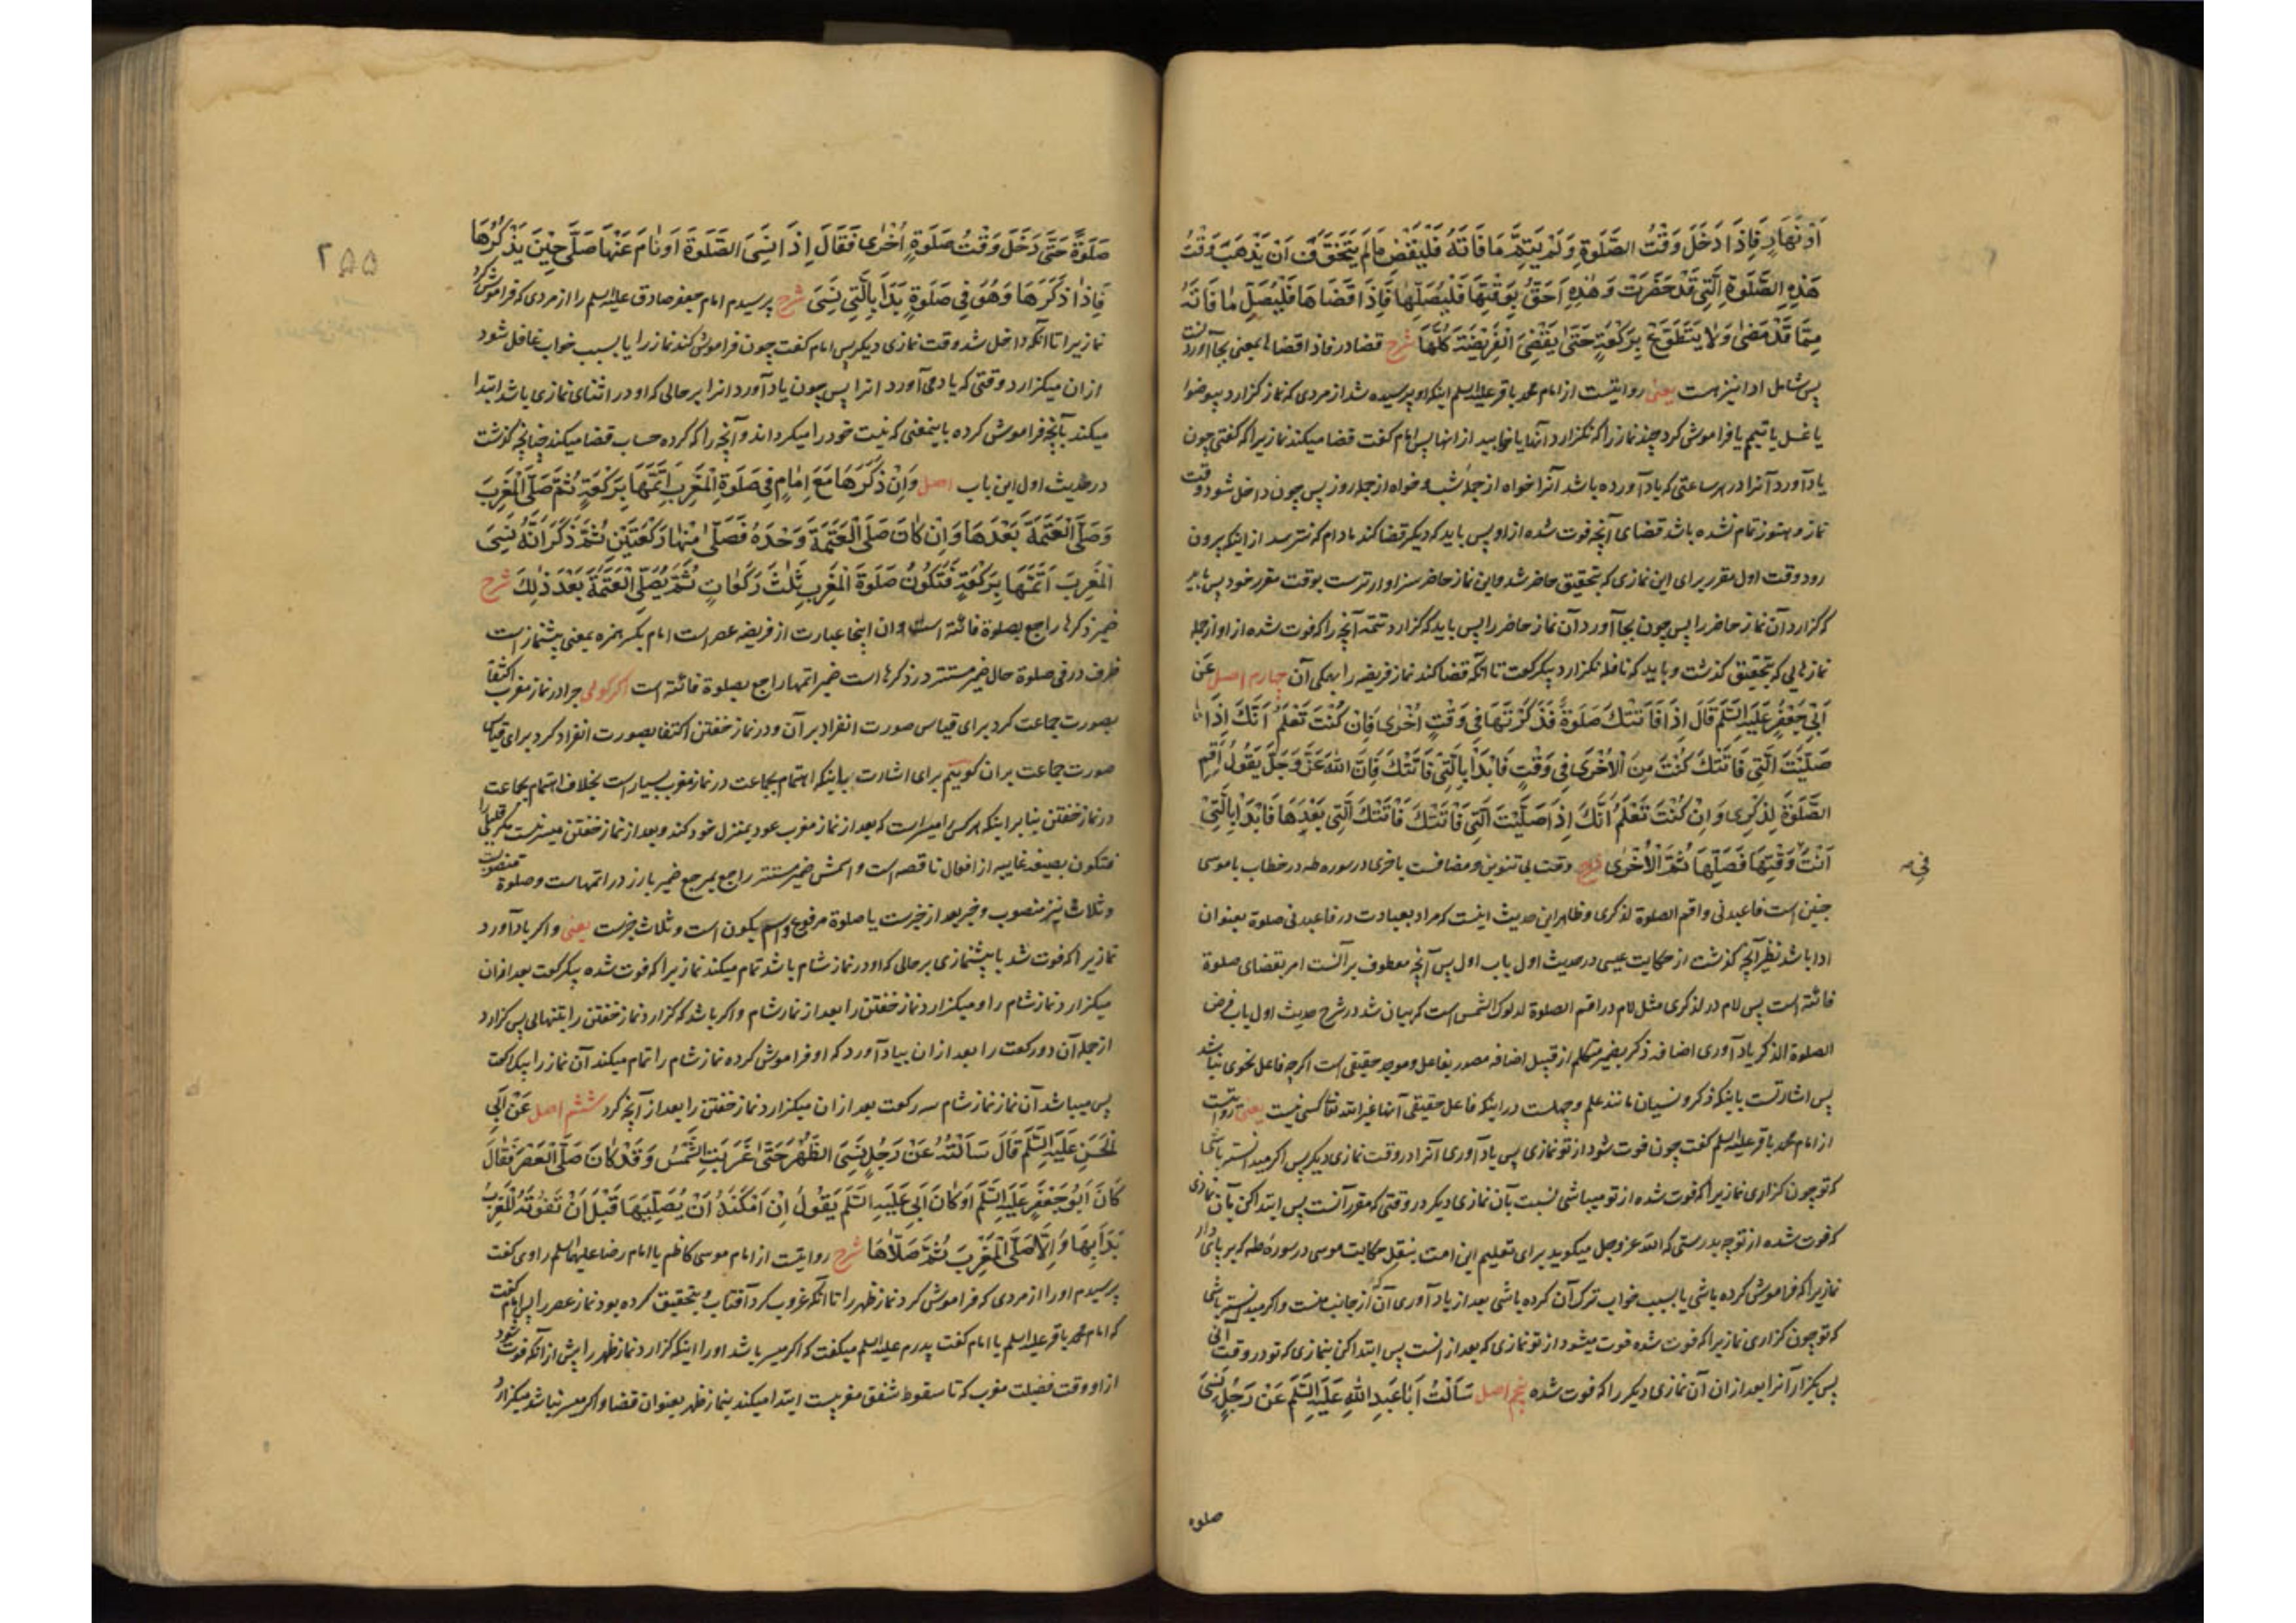 اَوْ نَهَارٍ فَاِذَا دَخَلَ وَقْتُ الصَّلٰوةِ وَلَمْ يَتِمَّ مَا فَاتَهُ فَلْيَقْضِ مَالَمْ يَتَخَوَّفْ اَنْ يَذْهَبَ وَقْتُ
هٰذِهِ الصَّلٰوةِ الَّتِي قَدْ حَضَرَتْ وَهٰذِهِ اَحَقُّ بِوَقْتِهَا فَلْيُصَلِّهَا فَاِذَا قَضَاهَا فَلْيُصَلِّ مٰا فَاتَهُ
مِمَّا قَدْ مَضٰى وَلٰا يَتَطَوَّعْ بِرَكْعَةٍ حَتّٰى يَقْضِيَ الْفَرِيْضَةَ كُلَّهَا شرح قضا در فاذا قضاها بمعنی بجا آوردنست
پس شامل ادا نیز هست یعنی روایتست از امام محمد باقر علیه السلم اینکه او پرسیده شد از مردی که نماز کزارد بیوضوا
یا غسل یا تیمم یا فراموش کرد چند نماز را که نکزارد آنها یا خوابید از انها پس امام کفت قضا میکند نمازیرا که کفتی چون
یاد آورد آنرا در هر ساعتی که یاد آورده باشد آنرا خواه از جمله شب و خواه از جمله روز پس چون داخل شود وقت
نماز و هنوز تمام نشده باشد قضای آنچه فوت شده از او پس باید که دیکر قضا کند مادام که نترسد از اینکه بیرون
رود وقت اول مقرر برای این نمازی که بتحقیق حاضر شد و این نماز حاضر سزاوارترست بوقت مقرر خود پس باید
که کزارد آن نماز حاضر را پس چون بجا آورد آن نماز حاضر را پس باید که کزارد تتمه آنچه را که فوت شده از او از جمله
نمازهایی که بتحقیق کذشت و باید که نافله نکزارد بیکرکعت تا انکه قضا کند نماز فریضه را همکی آن چهارم اصل عَنْ
اَبِيْ جَعْفَرٍ عَلَيْهِ السَّلَمُ قَالَ اِذَا فَاتَتْكَ صَلٰوةٌ فَذَكَرْتَهَا فِي وَقْتِ اُخْرٰى فَاِنْ كُنْتَ تَعْلَمُ اَنَّكَ اِذَا
صَلَّيْتَ الَّتِي فَاتَتْكَ كُنْتَ مِنَ الْاُخْرٰى فِي وَقْتٍ فَابْدَأْ بِالَّتِيْ فَاتَتْكَ فَاِنَّ اللهَ عَزَّ وَجَلَّ يَقُوْلُ اَقِمِ
الصَّلٰوةَ لِذِكْرِى وَاِنْ كُنْتَ تَعْلَمُ اَنَّكَ اِذَا صَلَّيْتَ الَّتِي فَاتَتْكَ فَاتَتْكَ الَّتِي بَعْدَهَا فَابْدَأْ بِالَّتِيْ
اَنْتَ وَقْتِهَا فَصَلِّهَا ثُمَّ الْاُخْرٰى شرح وقت بی تنوین و مضافست باخری در سوره طه در خطاب با موسی
فی صه
چنین است فاعبدنی و اقم الصلوة لذکری و ظاهر این حدیث اینست که مراد بعبادت در فاعبدنی صلوة بعنوان
ادا باشد نظیر آنچه کذشت از حکایت عیسی در حدیث اول باب اول پس آنچه معطوف بر آنست امر بقضای صلوة
فائته است پس لام در لذکری مثل لام در اقم الصلوة لدلوک الشمس است که بیان شد در شرح حدیث اول باب فرض
الصلوة الذکر یاد آوری اضافه ذکر بضمیر متکلم از قبیل اضافه مصدر بفاعل و موجد حقیقی است اکرچه فاعل نحوی نباشد
پس اشارتست باینکه ذکر و نسیان مانند علم و جهلست در اینکه فاعل حقیقی آنها غیر الله تعالی کسی نیست یعنی روایتست
از امام محمد باقر علیه السلم کفت چون فوت شود از تو نمازی پس یاد آوری آنرا در وقت نمازی دیکر پس اکر میدانسته باشی
که تو چون کزاری نمازیرا که فوت شده از تو میباشی نسبت بآن نمازی دیکر در وقتی که مقرر آنست پس ابتدا کن بآن نمازی
که فوت شده از تو چه بدرستی که الله عز و جل میکوید برای تعلیم این امت بنقل حکایت موسی در سوره طه که بر پای دار
نمازیرا که فراموش کرده باشی یا بسبب خواب ترک آن کرده باشی بعد از یاد آوری آن که از جانب منست و اکر میدانسته باشی
که تو چون کزاری نمازیرا که فوت شده فوت میشود از تو نمازی که بعد از انست پس ابتدا کن بنمازی که تو در وقت آنی
پس بکزار آنرا بعد از ان آن نمازی دیکر را که فوت شده پنجم اصل سَأَلْتُ اَبَا عَبْدِ اللهِ عَلَيْهِ السَّلَمُ عَنْ رَجُلٍ نَسِيَ
صلوة
۲۵۵
صَلٰوةً حَتّٰى دَخَلَ وَقْتُ صَلٰوةٍ اُخْرٰى فَقَالَ اِذَا نَسِيَ الصَّلٰوةَ اَوْ نَامَ عَنْهَا صَلّٰى حِيْنَ يَذْكُرُهَا
فَاِذٰا ذَكَرَهَا وَهُوَ فِي صَلٰوةٍ بَدَأَ بِالَّتِي نَسِيَ شرح پرسیدم امام جعفر صادق علیه السلم را از مردی که فراموش کرد
نمازیرا تا آنکه داخل شد وقت نمازی دیکر پس امام کفت چون فراموش کند نماز را یا بسبب خواب غافل شود
از ان میکزارد وقتی که یاد می آورد انرا پس چون یاد آورد انرا بر حالی که او در اثنای نمازی باشد ابتدا
میکند بآنچه فراموش کرده باینمعنی که نیت خود را میکرداند و آنچه را که کرده حساب قضا میکند چنانچه کذشت
در حدیث اول این باب اصل وَاِنْ ذَكَرَهَا مَعَ اِمَامٍ فِي صَلٰوةِ الْمَغْرِبِ اَتَمَّهَا بِرَكْعَةٍ ثُمَّ صَلَّى الْمَغْرِبَ
وَصَلَّى الْعَتَمَةَ بَعْدَهَا وَاِنْ كَانَ صَلَّى الْعَتَمَةَ وَحْدَهُ فَصَلّٰى مِنْهَا رَكْعَتَيْنِ ثُمَّ ذَكَرَ اَنَّهُ نَسِيَ
الْمَغْرِبَ اَتَمَّهَا بِرَكْعَةٍ فَتَكُوْنُ صَلٰوةَ الْمَغْرِبِ ثَلٰثَ رَكَعٰاتٍ ثُمَّ يُصَلِّي الْعَتَمَةَ بَعْدَ ذٰلِكَ شرح
ضمیر ذکرها راجع بصلوة فائته است و ان اینجا عبارت از فریضه عصر است امام بکسر همزه بمعنی پیشنماز است
ظرف در فی صلوة حال ضمیر مستتر در ذکرها است ضمیر اتمها راجع بصلوة فائته است اکر کوئی چرا در نماز مغرب اکتفا
بصورت جماعت کرد برای قیاس صورت انفراد بر آن و در نماز خفتن اکتفا بصورت انفراد کرد برای قیاس
صورت جماعت بر ان کوییم برای اشارت باینکه اهتمام بجماعت در نماز مغرب بسیار است بخلاف اهتمام بجماعت
در نماز خفتن بنا بر اینکه هر کس را میسر است که بعد از نماز مغرب عود بمنزل خود کند و بعد از نماز خفتن میسر نیست مکر قلیلی را
فتکون بصیغه غایبه از افعال ناقصه است و اسمش ضمیر مستتر راجع بمرجع ضمیر بارز در اتمهاست و صلوة منصوبست
و ثلاث نیز منصوب و خبر بعد از خبرست یا صلوة مرفوع و اسم یکون است و ثلاث خبرست یعنی و اکر یاد آورد
نمازیرا که فوت شد با پیشنمازی بر حالی که او در نماز شام باشد تمام میکند نمازیرا که فوت شده بیکرکعت بعد از ان
میکزارد نماز شام را و میکزارد نماز خفتن را بعد از نماز شام و اکر باشد که کزارد نماز خفتن را بتنهائی پس کزارد
از جمله آن دو رکعت را بعد از ان بیاد آورد که او فراموش کرده نماز شام را تمام میکند آن نماز را بیکرکعت
پس میباشد آن نماز نماز شام سه رکعت بعد از ان میکزارد نماز خفتن را بعد از آنچه کرد ششم اصل عَنْ اَبِي
الْحَسَنِ عَلَيْهِ السَّلَمُ قَالَ سَأَلْتُهُ عَنْ رَجُلٍ نَسِيَ الظُّهْرَ حَتّٰى غَرَبَتِ الشَّمْسُ وَقَدْ كَانَ صَلَّى الْعَصْرَ فَقَالَ
كَانَ اَبُوْ جَعْفَرٍ عَلَيْهِ السَّلَمُ اَوْ كَانَ اَبِيْ عَلَيْهِ السَّلَمُ يَقُوْلُ اِنْ اَمْكَنَهُ اَنْ يُصَلِّيَهَا قَبْلَ اَنْ تَفُوْتَهُ الْمَغْرِبُ
بَدَأَ بِهَا وَاِلَّا صَلَّى الْمَغْرِبَ ثُمَّ صَلَّاهَا شرح روایتست از امام موسی کاظم یا امام رضا علیهما السلم راوی کفت
پرسیدم او را از مردی که فراموش کرد نماز ظهر را تا آنکه غروب کرد آفتاب و بتحقیق کرده بود نماز عصر را پس امام کفت
که امام محمد باقر علیه السلم یا امام کفت پدرم علیه السلم میکفت که اکر میسر باشد او را اینکه کزارد نماز ظهر را پیش از آنکه فوت شود
از او وقت فضیلت مغرب که تا سقوط شفق مغربیست ابتدا میکند بنماز ظهر بعنوان قضا و اکر میسر نباشد میکزارد